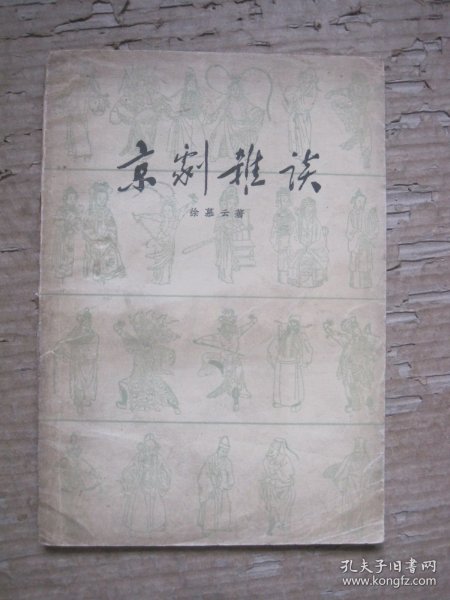 京剧雜谈
徐慕云著
孔夫子旧书网
www.kongfz.com